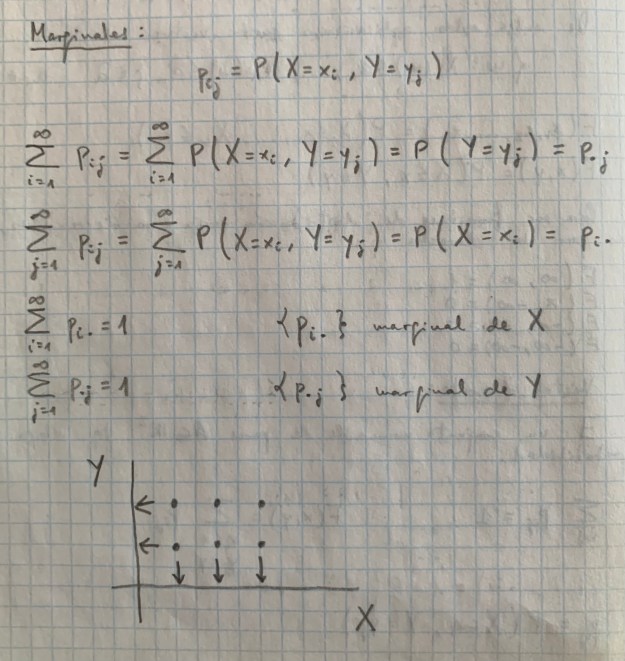 Marginales:
p_ij = P(X=x_i, Y=y_j)
∑_{i=1}^∞ p_ij = ∑_{i=1}^∞ P(X=x_i, Y=y_j) = P(Y=y_j) = p_·j
∑_{j=1}^∞ p_ij = ∑_{j=1}^∞ P(X=x_i, Y=y_j) = P(X=x_i) = p_i·
∑_{i=1}^∞ p_i· = 1 {p_i·} marginal de X
∑_{j=1}^∞ p_·j = 1 {p_·j} marginal de Y
Y
X